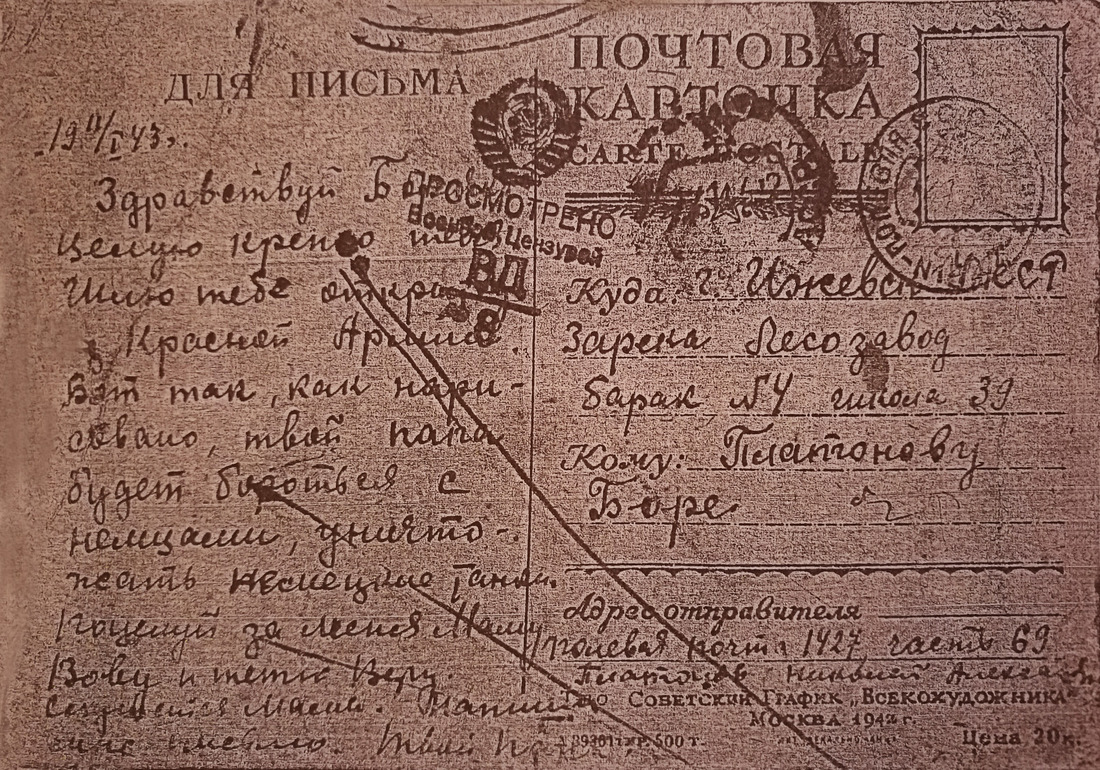 ДЛЯ ПИСЬМА
19 11/I 43 г.
Здравствуй Боря
Целую крепко тебя
Шлю тебе открытку
Красной Армии.
Вот так, как нари-
совано, твой папа
будет бороться с
немцами, уничто-
жать немецкие танки.
Поцелуй за меня Маму
Вову и тетю Веру.
Слушайся Мамы. Напиши
мне письмо. Твой Папа
ПРОСМОТРЕНО
Военной Цензурой
ВД
8
ПОЧТОВАЯ
КАРТОЧКА
CARTE POSTALE
Куда: г. Ижевск
Зарека Лесозавод
барак №4 школа 39
Кому: Платонову
Боре
Адрес отправителя
полевая почта 1427 часть 69
Платонов Николай
Советский График „Всекохудожника“
Москва 1942 г.
500 т.
Цена 20 к.